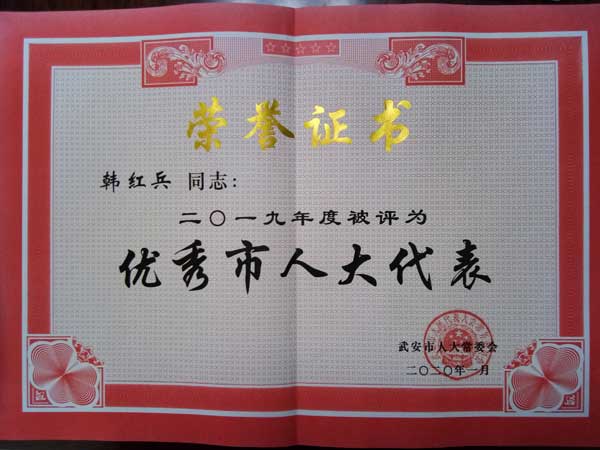 荣誉证书
韩红兵 同志：
二〇一九年度被评为
优秀市人大代表
武安市人大常委会
二〇二〇年一月